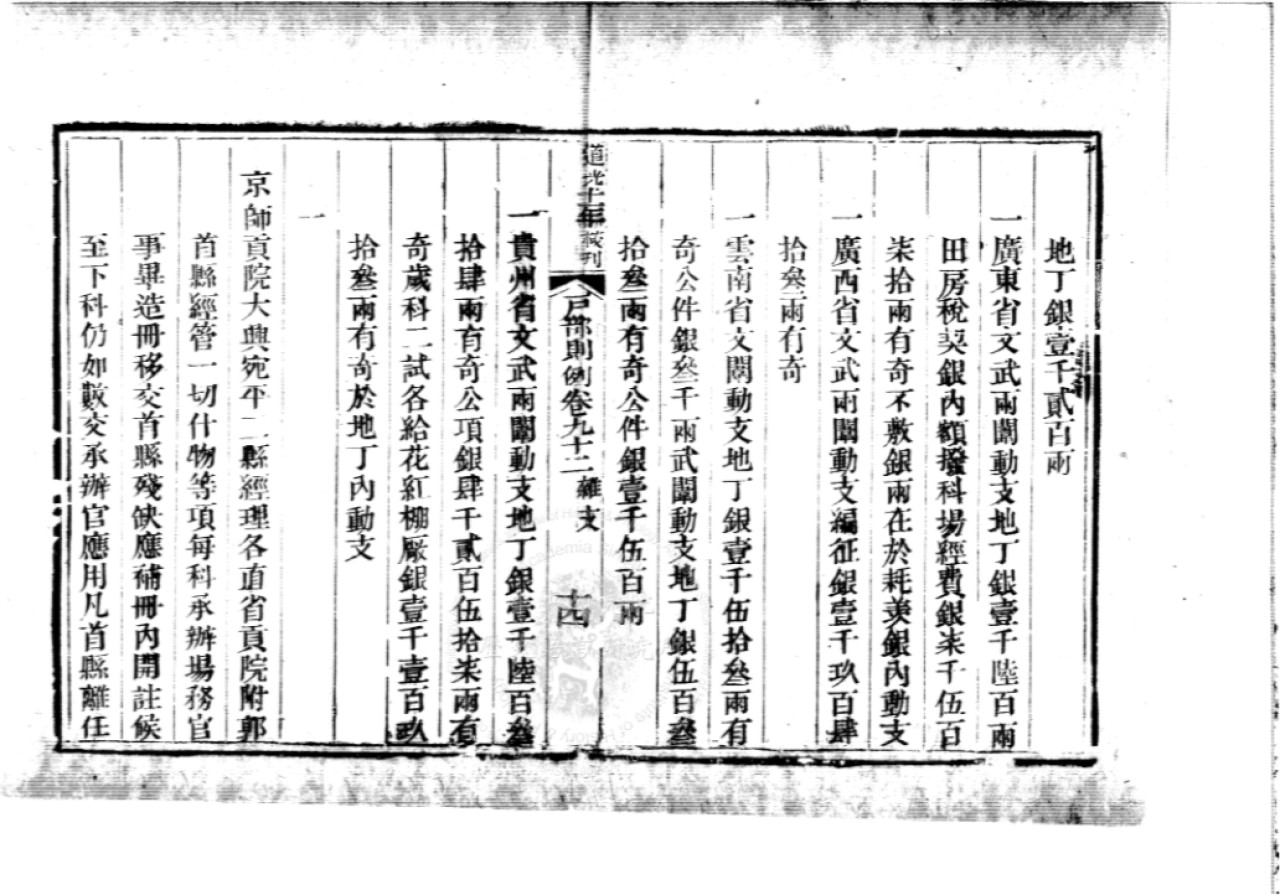 地丁銀壹千貳百兩
一廣東省文武兩闈動支地丁銀壹千陸百兩
田房稅契銀內額撥科場經費銀柒千伍百
柒拾兩有奇不敷銀兩在於耗羨銀內動支
一廣西省文武兩闈動支編征銀壹千玖百肆
拾叄兩有奇
一雲南省文闈動支地丁銀壹千伍拾叄兩有
奇公件銀叄千兩武闈動支地丁銀伍百叄
拾叄兩有奇公件銀壹千伍百兩
道光十一年校刊
戶部則例卷九十二 雜支
十四
一貴州省文武兩闈動支地丁銀壹千陸百叄
拾肆兩有奇公項銀肆千貳百伍拾柒兩有
奇歲科二試各給花紅棚厰銀壹千壹百玖
拾叄兩有奇於地丁內動支
一
京師貢院大興宛平二縣經理各直省貢院附郭
首縣經管一切什物等項每科承辦場務官
事畢造冊移交首縣殘缺應補冊內開註候
至下科仍如數交承辦官應用凡首縣離任